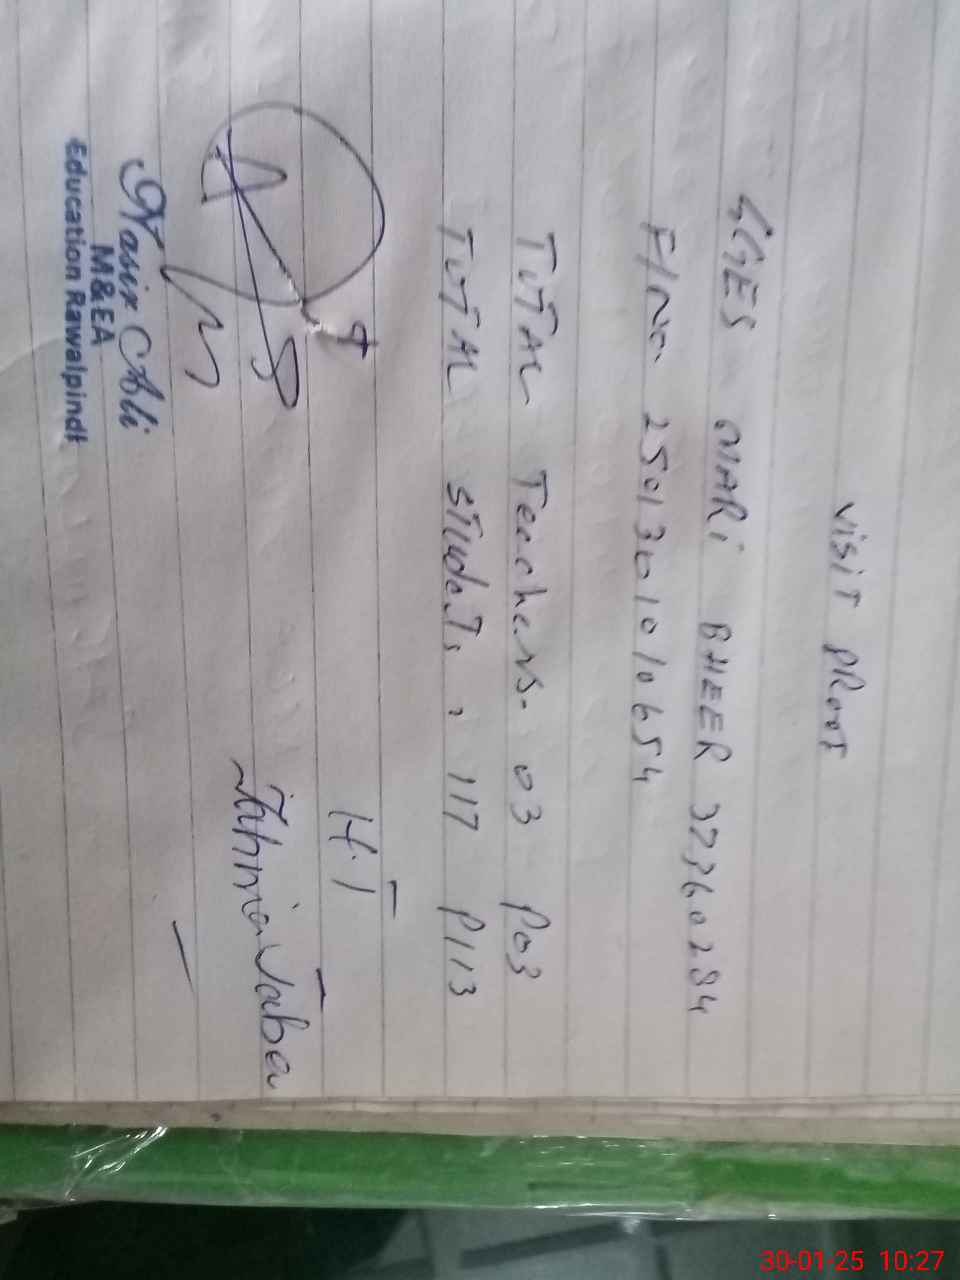 VISIT PROOF
GGES MARI BHEER 37360284
F/No- 250130101010654
TOTAL Teachers- 03 P03
TOTAL students, 117 P113
H.T
Tahmia Taba
Nasir Ali
M&EA
Education Rawalpindi
30-01-25 10:27